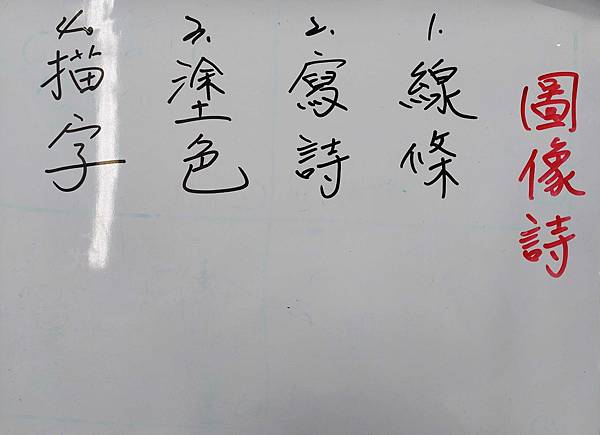 圖像詩
1. 線條
2. 寫詩
3. 塗色
4. 描字